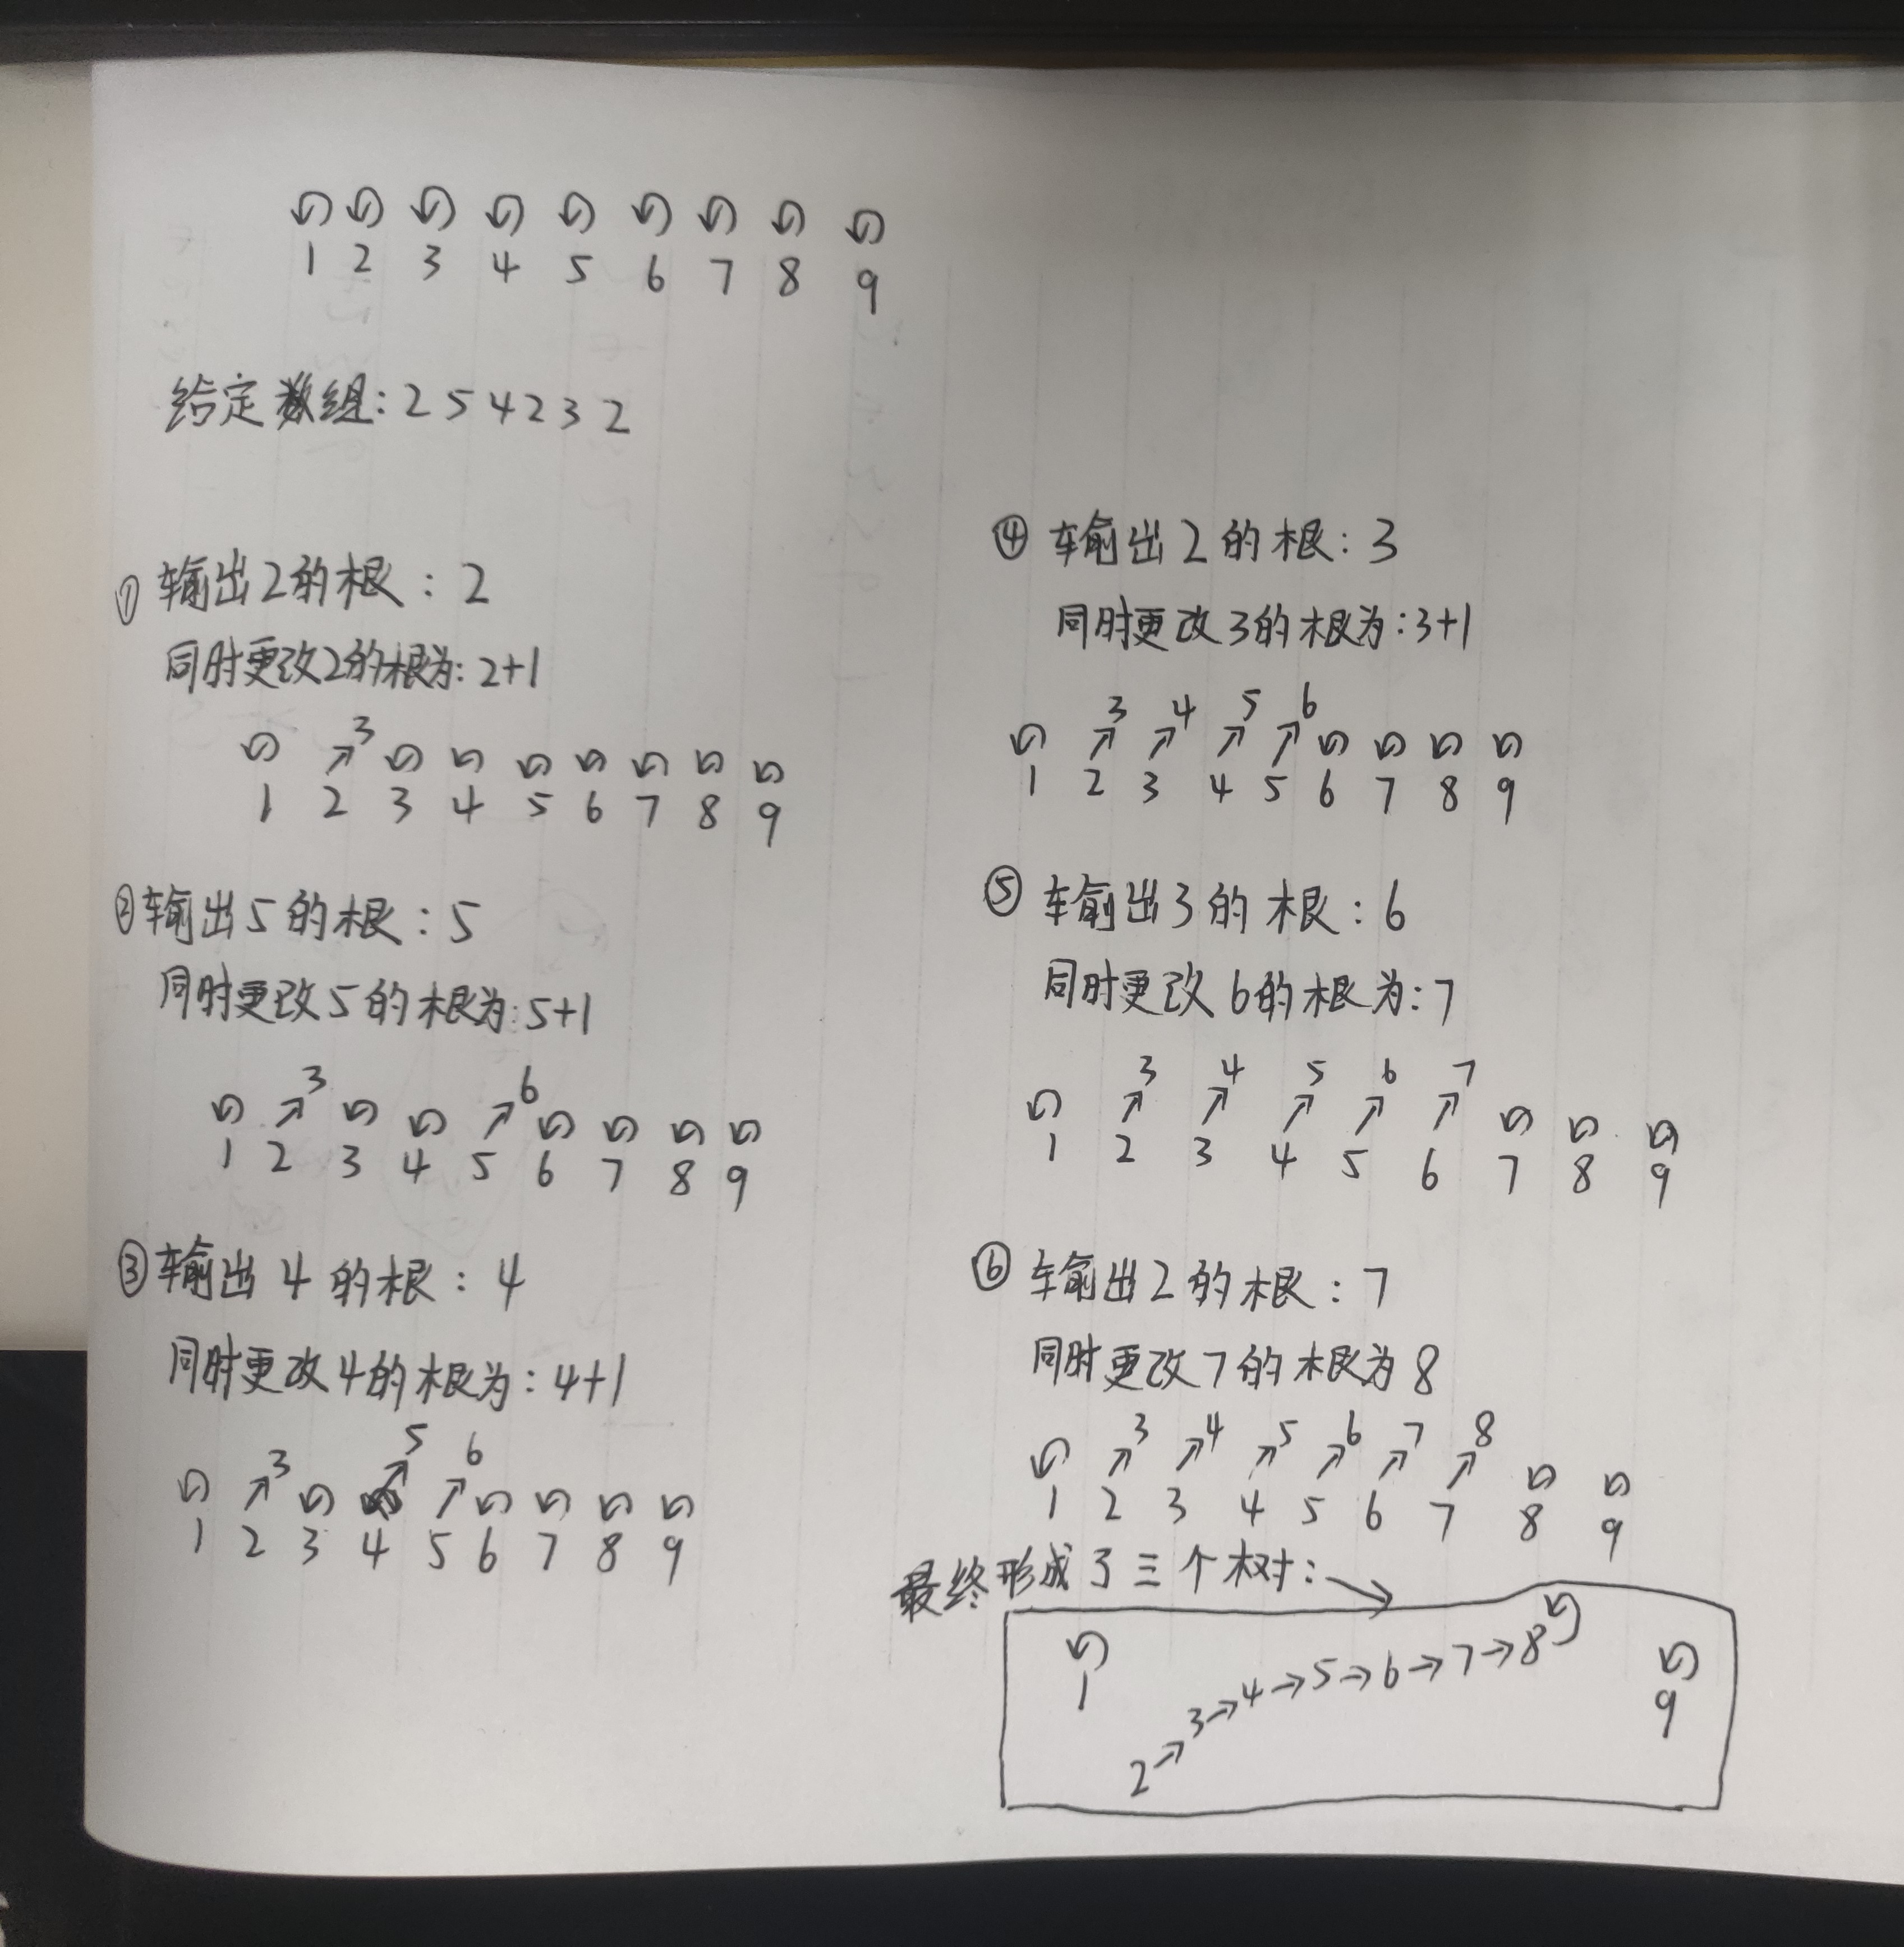 1 2 3 4 5 6 7 8 9
给定数组: 2 5 4 2 3 2
① 输出2的根: 2
同时更改2的根为: 2+1
3
1 2 3 4 5 6 7 8 9
② 输出5的根: 5
同时更改5的根为: 5+1
3 6
1 2 3 4 5 6 7 8 9
③ 输出4的根: 4
同时更改4的根为: 4+1
3 5 6
1 2 3 4 5 6 7 8 9
④ 输出2的根: 3
同时更改3的根为: 3+1
3 4 5 6
1 2 3 4 5 6 7 8 9
⑤ 输出3的根: 6
同时更改6的根为: 7
3 4 5 6 7
1 2 3 4 5 6 7 8 9
⑥ 输出2的根: 7
同时更改7的根为8
3 4 5 6 7 8
1 2 3 4 5 6 7 8 9
最终形成了三个树: →
1 2→3→4→5→6→7→8 9